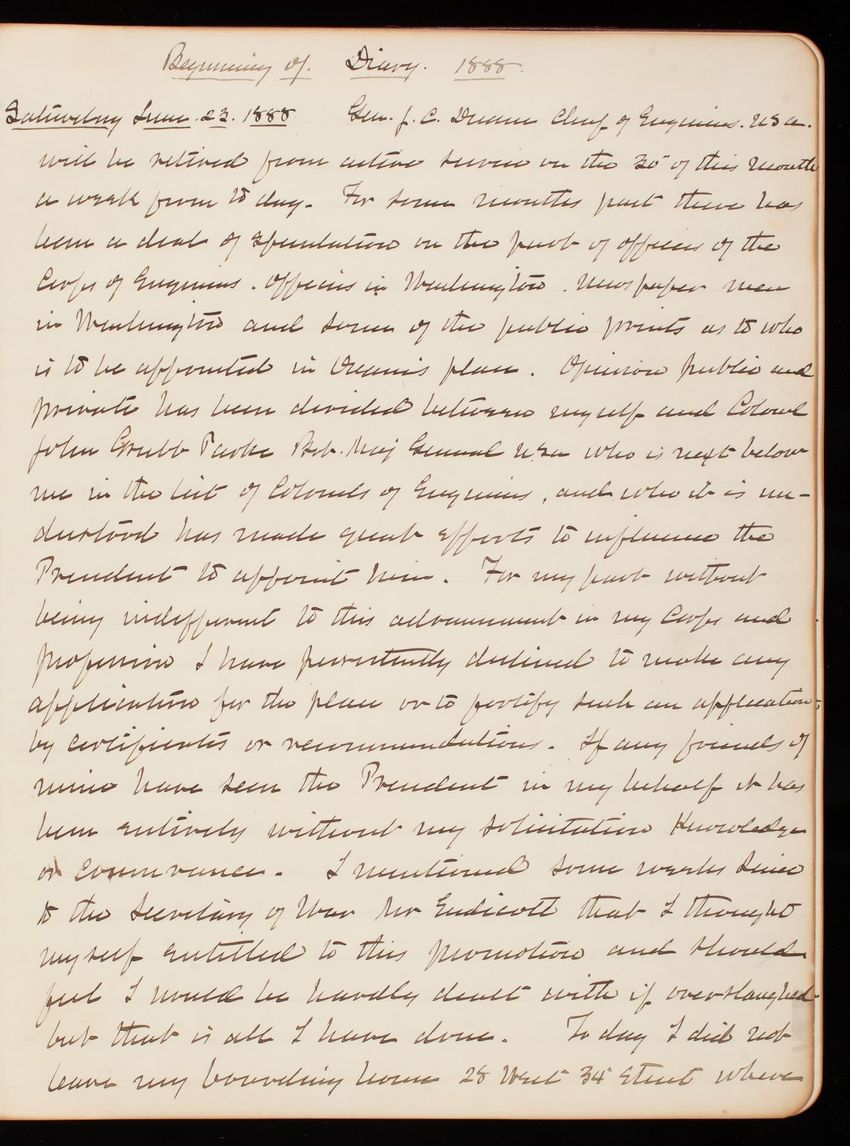 Beginning of Diary. 1888.
Saturday June. 23. 1888 Gen. J. C. Duane Chief of Engineers. USA.
will be retired from active service on the 30" of this month
a week from to day. For some months past there has
been a deal of speculation on the part of officers of the
Corps of Engineers. officers in Washington. newspaper men
in Washington and some of the public prints as to who
is to be appointed in Duane's place. Opinion public and
private has been divided between myself and Colonel
John Grubb Parke Bvt. Maj General USA who is next below
me in the list of Colonels of Engineers, and who it is un-
derstood has made great efforts to influence the
President to appoint him. For my part without
being indifferent to this advancement in my Corps and
profession I have persistently declined to make any
application for the place or to fortify such an application
by certificates or recommendations. If any friends of
mine have seen the President in my behalf it has
been entirely without my solicitation knowledge
or connivance. I mentioned some weeks since
to the Secretary of War Mr Endicott that I thought
myself entitled to this promotion and should
feel I would be hardly dealt with if overslaughed
but that is all I have done. To day I did not
leave my boarding house 28 West 34" Street where